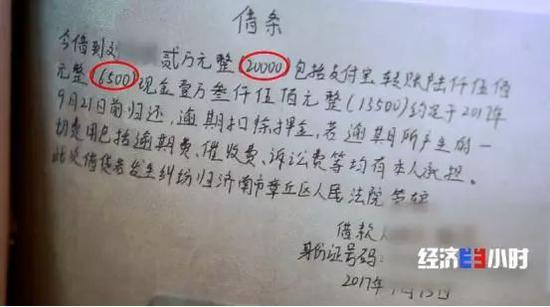 借条
今借到刘 贰万元整(20000)包括支付宝转账陆仟伍佰
元整(6500)现金壹万叁仟伍佰元整(13500)约定于2017年
9月21日前归还,逾期扣除押金,若逾期所产生的一
切费用包括逾期费、催收费、诉讼费等均有本人承担。
此凭借贷者发生纠纷归济南市章丘区人民法院管辖
借款人
身份证号码:
2017
经济半小时